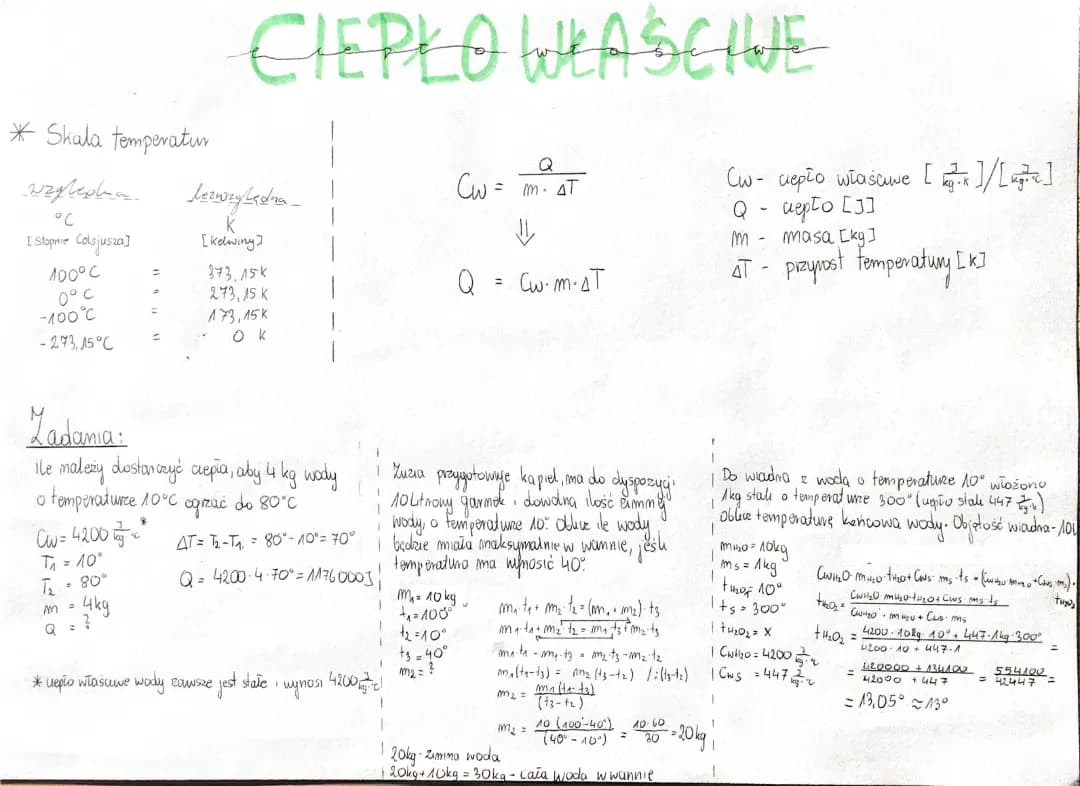 CIEPŁO WŁAŚCIWE
ciepło właściwe
* Skala temperatur
względna bezwzględna
°C K
[Stopnie Celsjusza] [kelwiny]
100°C = 373,15K
0°C = 273,15 K
-100°C = 173,15K
-273,15°C = 0 K
Cw = Q / m · ΔT
⇓
Q = Cw · m · ΔT
Cw - ciepło właściwe [J/kg·K]/[J/kg·°C]
Q - ciepło [J]
m - masa [kg]
ΔT - przyrost temperatury [K]
Zadania:
Ile należy dostarczyć ciepła, aby 4 kg wody
o temperaturze 10°C ogrzać do 80°C
Cw = 4200 J/kg·°C *
T₁ = 10°
T₂ = 80°
m = 4kg
Q = ?
ΔT = T₂ - T₁ = 80° - 10° = 70°
Q = 4200 · 4 · 70° = 1176000J
* ciepło właściwe wody zawsze jest stałe i wynosi 4200 J/kg·°C
Zuzia przygotowuje kąpiel, ma do dyspozycji
10 Litrowy garnek i dowolną ilość zimnej
wody, o temperaturze 10°. Oblicz ile wody
będzie miała maksymalnie w wannie, jeśli
temperatura ma wynosić 40°.
m₁ = 10kg
t₁ = 100°
t₂ = 10°
t₃ = 40°
m₂ = ?
m₁ · t₁ + m₂ · t₂ = (m₁ + m₂) · t₃
m₁ · t₁ + m₂ · t₂ = m₁ t₃ + m₂ · t₃
m₁ · t₁ - m₁ · t₃ = m₂ · t₃ - m₂ · t₂
m₁ (t₁ - t₃) = m₂ (t₃ - t₂) / : (t₃ - t₂)
m₂ = m₁ (t₁ - t₃) / (t₃ - t₂)
m₂ = 10 (100° - 40°) / (40° - 10°) = 10 · 60 / 30 = 20kg
20kg - zimna woda
20kg + 10kg = 30kg - cała woda w wannie
Do wiadra z wodą o temperaturze 10° włożono
1kg stali o temperaturze 300° (ciepło stali 447 J/kg·°C)
Oblicz temperaturę końcową wody. Objętość wiadra - 10l
mH₂O = 10kg
ms = 1kg
tH₂O = 10°
ts = 300°
tH₂O₂ = X
CwH₂O = 4200 J/kg·°C
Cws = 447 J/kg·°C
CwH₂O · mH₂O · tH₂O + Cws · ms · ts = (CwH₂O · mH₂O + Cws · ms) · tH₂O₂
tH₂O₂ = CwH₂O · mH₂O · tH₂O + Cws · ms · ts / CwH₂O · mH₂O + Cws · ms
tH₂O₂ = 4200 · 10kg · 10° + 447 · 1kg · 300° / 4200 · 10 + 447 · 1 =
= 420000 + 134100 / 42000 + 447 = 554100 / 42447 =
= 13,05° ≈ 13°